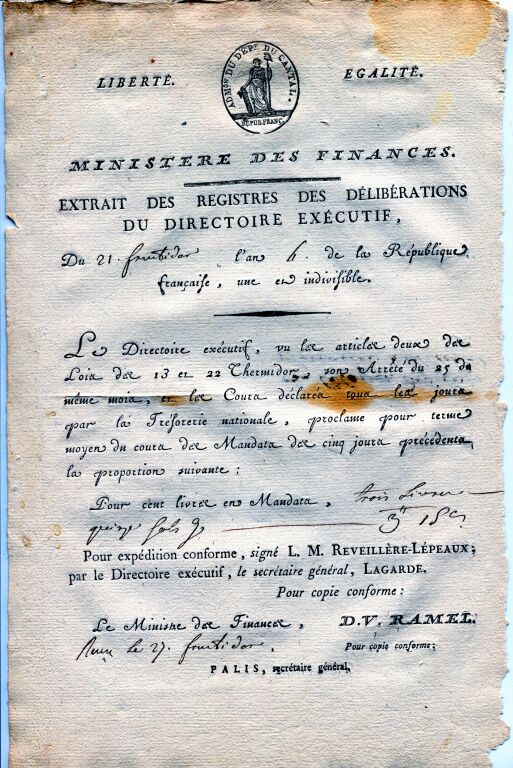 ADM.ON DU DÉP.T DU CANTAL.
RÉPUB. FRANÇ.
LIBERTÉ. EGALITÉ.
MINISTERE DES FINANCES.
EXTRAIT DES REGISTRES DES DÉLIBÉRATIONS
DU DIRECTOIRE EXÉCUTIF,
Du 21. fructidor l'an 4. de la République
françaife, une et indivifible.
Le Directoire exécutif, vu les articles deux des
Lois des 13 et 22 Thermidor, son Arrêté du 25 du
même mois, et les Cours déclarés tous les jours
par la Tréforerie nationale, proclame pour terme
moyen du cours des Mandats des cinq jours précédents,
la proportion suivante :
Pour cent livres en Mandats, trois Livres
quinze sols 3tt 15s
Pour expédition conforme, signé L. M. REVEILLÈRE-LÉPEAUX;
par le Directoire exécutif, le secrétaire général, LAGARDE.
Pour copie conforme :
Le Ministre des Finances, D.V. RAMEL.
le 27. fructidor. Pour copie conforme;
PALIS, secrétaire général,